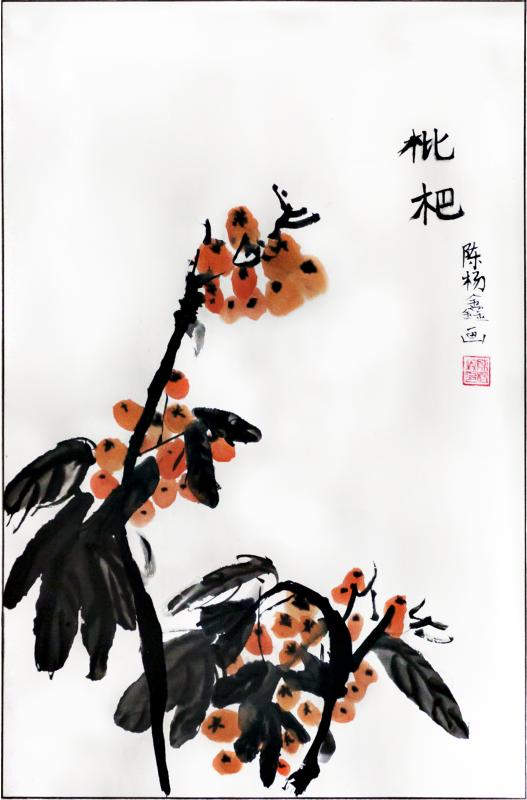 枇杷
陈杨鑫画